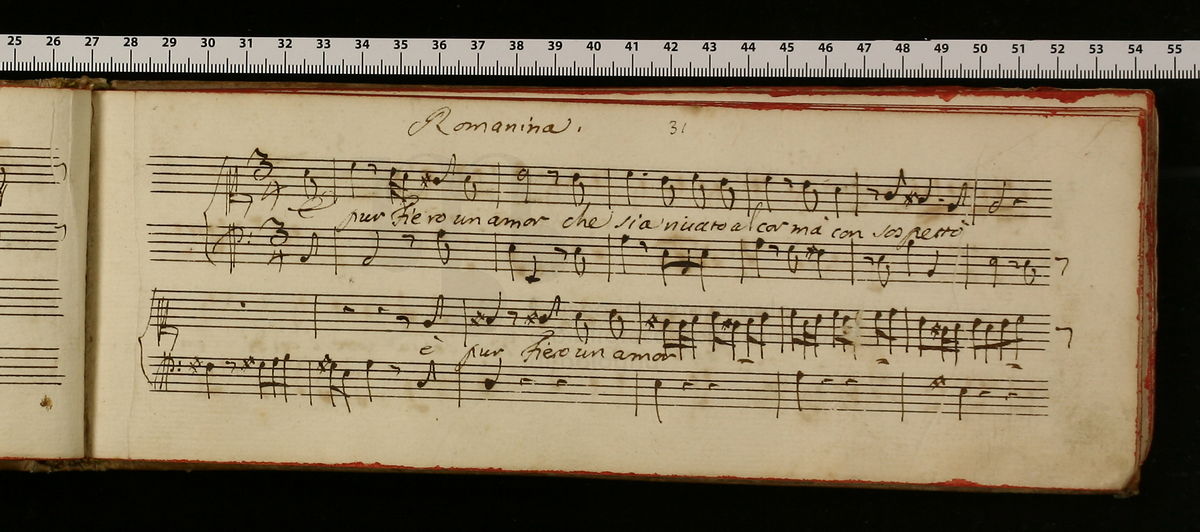 25 26 27 28 29 30 31 32 33 34 35 36 37 38 39 40 41 42 43 44 45 46 47 48 49 50 51 52 53 54 55
Romanina. 31
3 4
È pur fiero un amor che sia nua al cor mà con sospetto
3 4
è pur fiero un amor